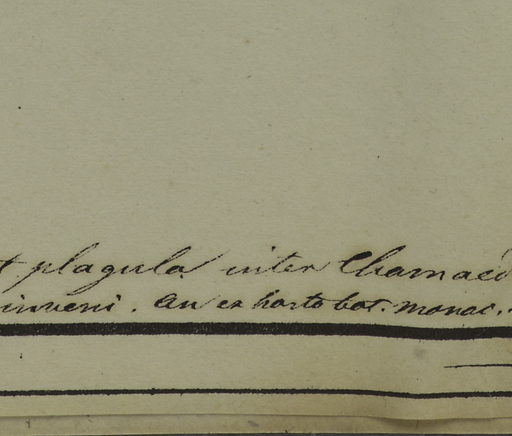 t plagula inter Chamaed
inveni. an ex horto bot. monac.